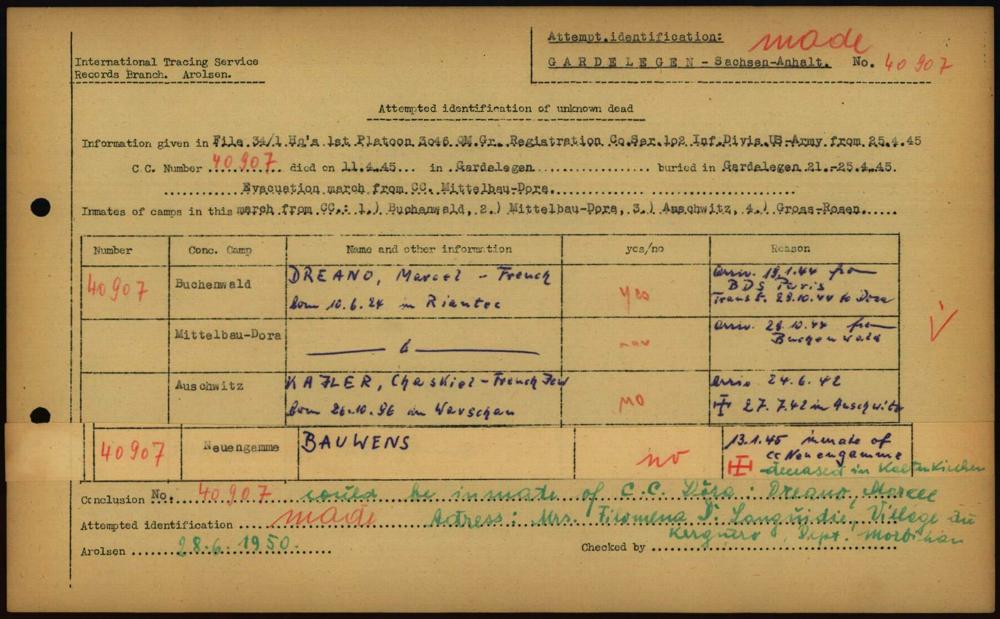 International Tracing Service
Records Branch. Arolsen.
Attempt.identification: made
GARDELEGEN - Sachsen-Anhalt. No. 40907
Attempted identification of unknown dead
Information given in File 34/1 Hq's 1st Platoon 3046 QM.Gr. Registration Co.Ser. 102 Inf.Divis.US-Army from 25.4.45
C.C. Number 40907 died on 11.4.45 in Gardelegen buried in Gardelegen 21.-25.4.45.
Evacuation march from CC. Mittelbau-Dora.
Inmates of camps in this march from CC.: 1.) Buchenwald, 2.) Mittelbau-Dora, 3.) Auschwitz, 4.) Gross-Rosen.
Number Conc. Camp Name and other information yes/no Reason
40907 Buchenwald DREANO, Marcel - French yes arriv. 19.1.44 from
born 10.6.24 in Riantec BDS Paris
Transf. 28.10.44 to Dora
Mittelbau-Dora arriv. 28.10.44 from
Buchenwald
Auschwitz KAJLER, Chaskiel - French Jew no arriv. 24.6.42
born 26.10.96 in Warschau 27.7.42 in Auschwitz
40907 Neuengamme BAUWENS no 13.1.45 inmate of
cc Neuengamme
deceased in Kaltenkirchen
Conclusion No. 40907 could be inmate of C.C. Dora: Dreano, Marcel
Attempted identification made Adress: Mrs. Filomena Village du
Kerguero, Dept. Morbihan
Arolsen 28.6.1950. Checked by